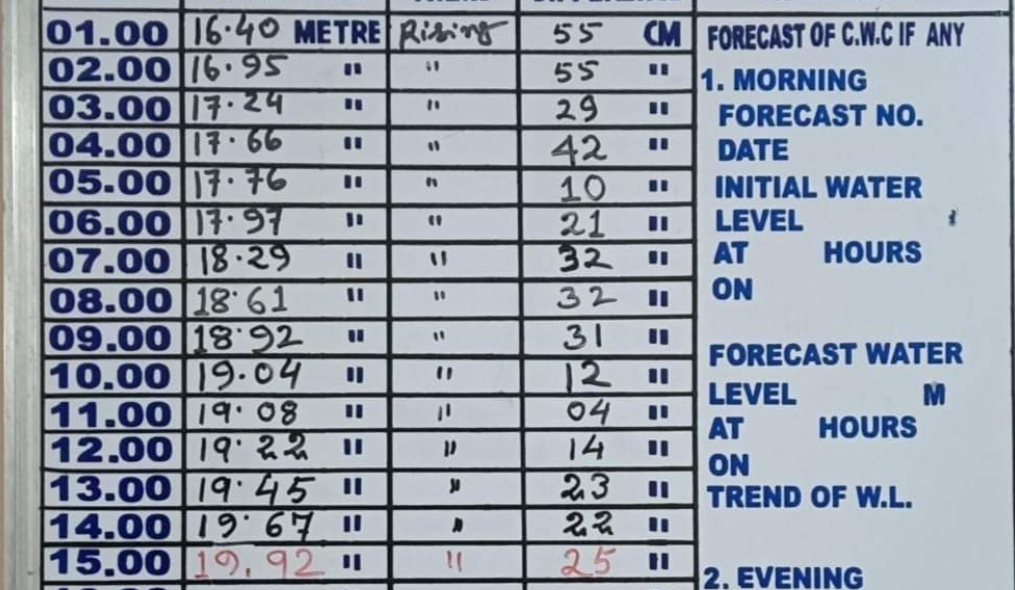 01.00 16.40 METRE Rising 55 CM
02.00 16.95 " " 55 "
03.00 17.24 " " 29 "
04.00 17.66 " " 42 "
05.00 17.76 " " 10 "
06.00 17.97 " " 21 "
07.00 18.29 " " 32 "
08.00 18.61 " " 32 "
09.00 18.92 " " 31 "
10.00 19.04 " " 12 "
11.00 19.08 " " 04 "
12.00 19.22 " " 14 "
13.00 19.45 " " 23 "
14.00 19.67 " " 22 "
15.00 19.92 " " 25 "
FORECAST OF C.W.C IF ANY
1. MORNING
FORECAST NO.
DATE
INITIAL WATER
LEVEL
AT HOURS
ON
FORECAST WATER
LEVEL M
AT HOURS
ON
TREND OF W.L.
2. EVENING